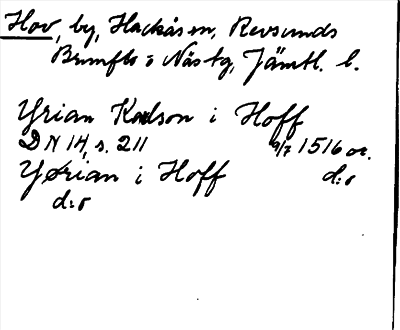 Hov, by, Hackås sn, Revsunds
Brunflo o Näs tg, Jämtl. l.
Yrian Kalson i Hoff
DN 14, s. 211 9/7 1516 or.
Yørian i Hoff d:o
d:o